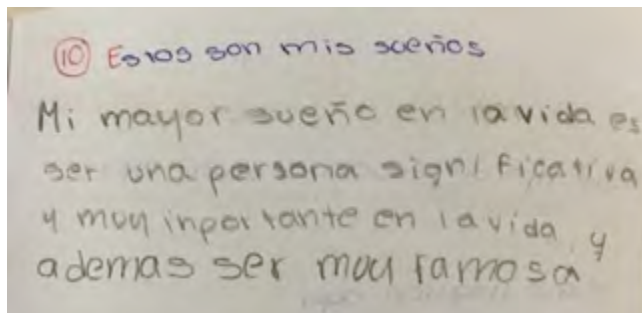 10 Estos son mis sueños
Mi mayor sueño en la vida es
ser una persona significativa
y muy inportante en la vida, y
ademas ser muy famosa